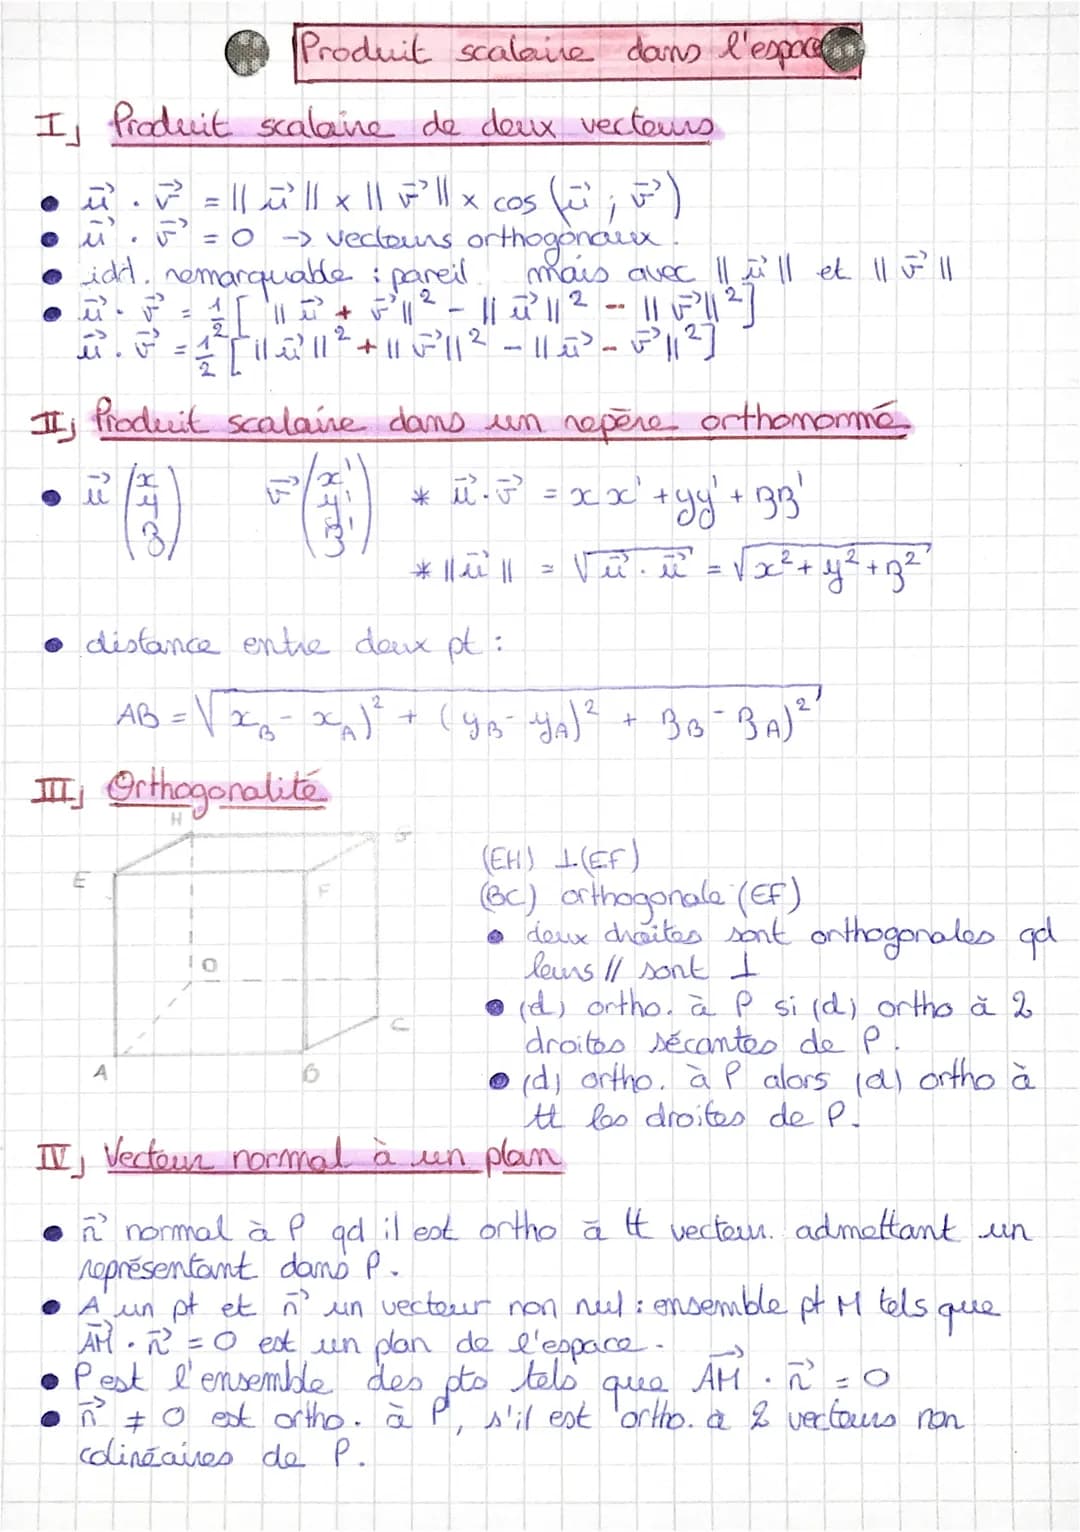 Produit scalaire dans l'espace
I) Produit scalaire de deux vecteurs
• u⃗ . v⃗ = || u⃗ || x || v⃗ || x cos (u⃗ ; v⃗)
• u⃗ . v⃗ = 0 -> vecteurs orthogonaux.
• idt. remarquable : pareil mais avec || u⃗ || et || v⃗ ||
• u⃗ . v⃗ = 1/2 [ || u⃗ + v⃗ ||² - || u⃗ ||² - || v⃗ ||² ]
u⃗ . v⃗ = 1/2 [ || u⃗ ||² + || v⃗ ||² - || u⃗ - v⃗ ||² ]
II) Produit scalaire dans un repère orthonormé
• u⃗ (x y z) v⃗ (x' y' z') * u⃗ . v⃗ = xx' + yy' + zz'
* || u⃗ || = √u⃗ . u⃗ = √x² + y² + z²
• distance entre deux pt :
AB = √x_B - x_A)² + (y_B - y_A)² + z_B - z_A)²
III) Orthogonalité
H G
E F
D
C
A B
(EH) ⊥ (EF)
(BC) orthogonale (EF)
• deux droites sont orthogonales qd
leurs // sont ⊥
• (d) ortho. à P si (d) ortho à 2
droites sécantes de P.
• (d) ortho. à P alors (d) ortho à
tt les droites de P.
IV) Vecteur normal à un plan
• n⃗ normal à P qd il est ortho à tt vecteur admettant un
représentant dans P.
• A un pt et n⃗ un vecteur non nul : ensemble pt M tels que
AM⃗ . n⃗ = 0 est un plan de l'espace.
• P est l'ensemble des pts tels que AM⃗ . n⃗ = 0
• n⃗ ≠ 0 est ortho. à P, s'il est ortho. à 2 vecteurs non
colinéaires de P.